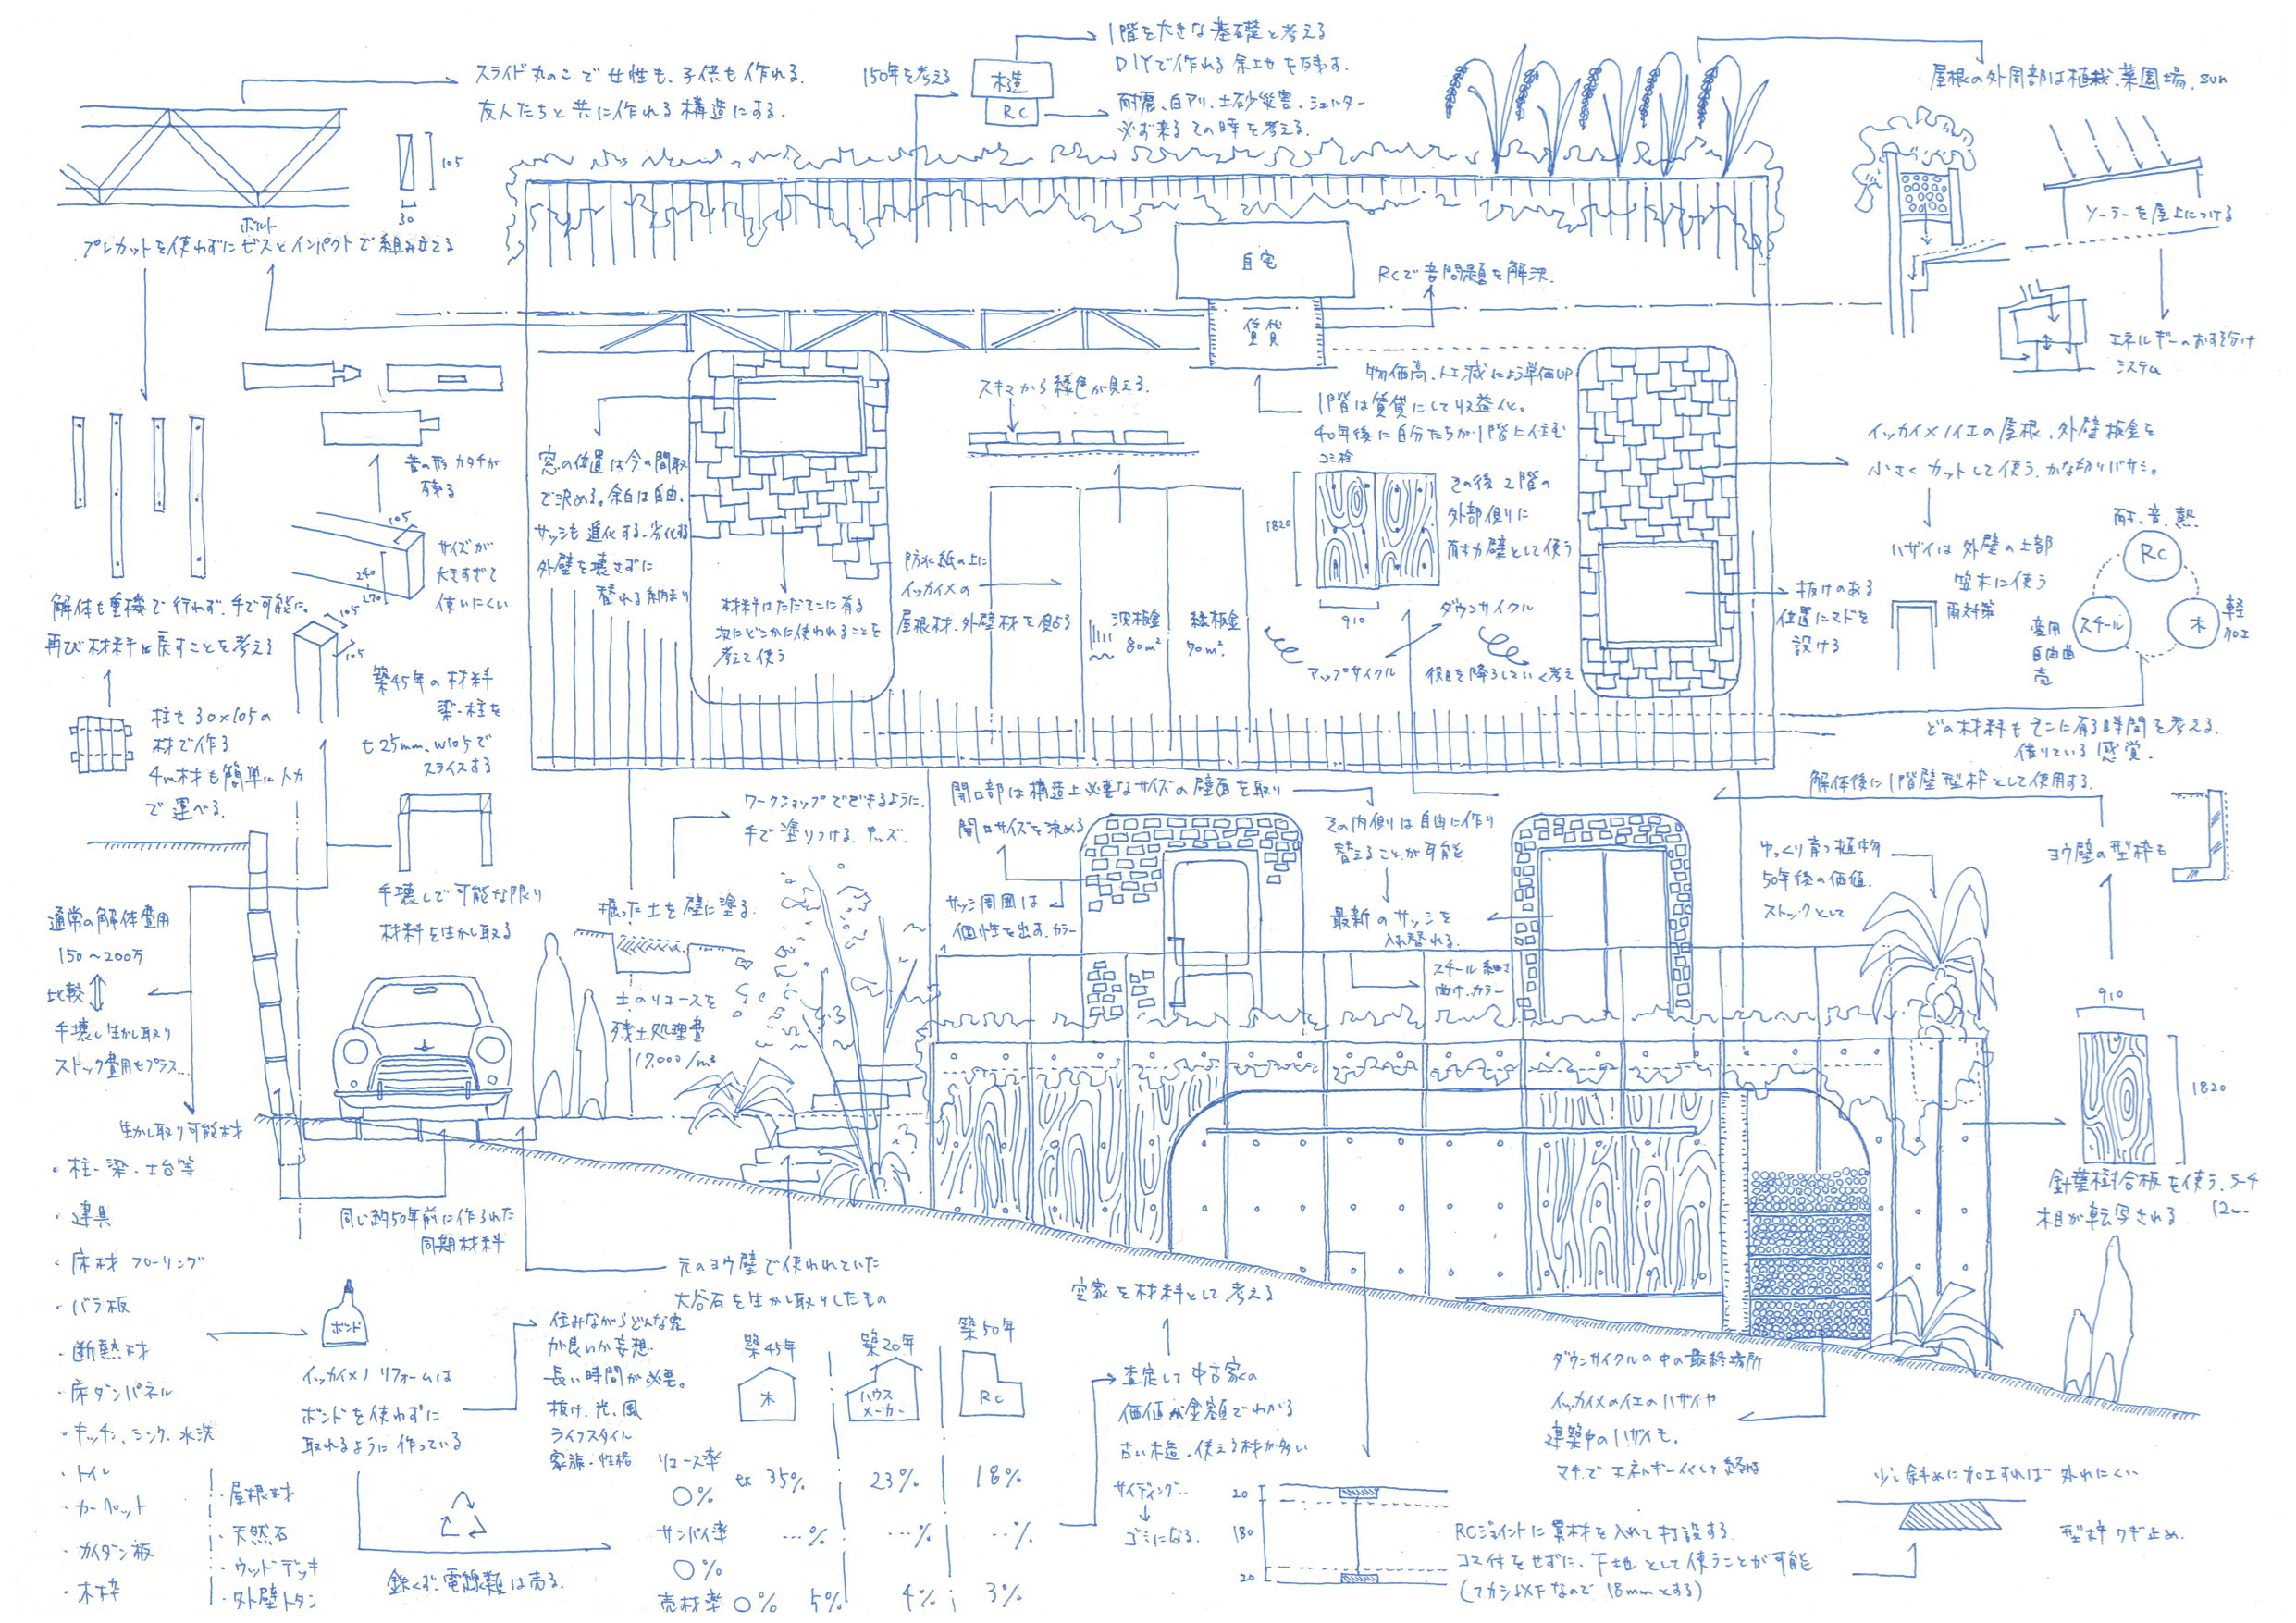 スライド丸のこで女性も、子供も作れる。
友人たちと共に作れる構造にする。
105
30
ボルト
プレカットを使わずにビスとインパクトで組み立てる
150年を考える
木造
RC
1階を大きな基礎と考える
DIYで作れる余地を残す。
耐震、白アリ、土砂災害、シェルター
必ず来るその時を考える。
屋根の外周部は植栽、菜園場、sun
ソーラーを屋上につける
エネルギーのおすそ分け
システム
自宅
賃貸
RCで音問題を解決。
物価高、人工減による単価UP
1階は賃貸にして収益化。
40年後に自分たちが1階に住む
スキマから緑色が見える。
昔の形 カタチが
残る
105
240
270
サイズが
大きすぎて
使いにくい
解体も重機で行わず、手で可能に。
再び材料に戻すことを考える
105
105
築45年の材料
梁・柱を
t25mm、W105で
スライスする
柱も30×105の
材で作る
4m材も簡単に人力
で運べる。
窓の位置は今の間取
で決める。余白は自由。
サッシも進化する、劣化する
外壁を壊さずに
替れる納まり
材料はただそこに有る
次にどこかに使われることを
考えて使う
防水紙の上に
イッカイメの
屋根材、外壁材を貼る
波板金
80m²
縁板金
70m²
1820
910
その後2階の
外部側に
耐力壁として使う
ダウンサイクル
アップサイクル
役目を降ろしていく考え
イッカイメノイエの屋根、外壁板金を
小さくカットして使う。かな切りバサミ。
ハザイは外壁の上部
笠木に使う
雨対策
抜けのある
位置にマドを
設ける
耐、音、熱
RC
スチール
木
軽
加工
変用
自由曲
売
どの材料もそこに有る時間を考える。
借りている感覚。
解体後に1階壁型枠として使用する。
ヨウ壁の型枠も
ワークショップでできるように。
手で塗りつける。
掘った土を壁に塗る。
土のリユースを
残土処理費
17,000/m³
開口部は構造上必要なサイズの壁面を取り
開口サイズを決める
サッシ周囲は
個性を出す、カラー
その内側は自由に作り
替えることが可能
最新のサッシを
入れ替れる。
スチール 細さ
曲げ、カラー
ゆっくり育つ植物
50年後の価値。
ストックとして
910
1820
針葉樹合板を使う。
木目が転写される
12mm
手壊しで可能な限り
材料を生かし取る
通常の解体費用
150〜200万
比較
手壊し生かし取り
ストック費用をプラス...
生かし取り可能材
・柱・梁・土台等
・建具
・床材 フローリング
・バラ板
・断熱材
・床ダンパネル
・キッチン、シンク、水洗
・トイレ
・カーペット
・カイダン板
・木枠
・屋根材
・天然石
・ウッドデッキ
・外壁トタン
同じ約50年前に作られた
同期材料
元のヨウ壁で使われていた
大谷石を生かし取りしたもの
ボンド
イッカイメノリフォームは
ボンドを使わずに
取れるように作っている
住みながらどんな家
が良いか妄想。
長い時間が必要。
抜け、光、風
ライフスタイル
家族・性格
鉄くず、電線類は売る。
築45年
木
築20年
ハウス
メーカー
築50年
RC
リユース率
0%
ex 35%
23%
18%
サンパイ率
0%
...%
...%
...%
売材率 0%
5%
4%
3%
空家を材料として考える
査定して中古家の
価値が金額でわかる
古い木造、使える材が多い
サイディング...
ゴミになる。
20
180
20
RCジョイントに累材を入れて打設する。
コス付をせずに、下地として使うことが可能
ダウンサイクルの中の最終場所
イッカイメのイエのハザイや
建築中のハザイも。
マキでエネルギー化して終わる
少し斜めに加工すれば外れにくい
型枠クギ止め。